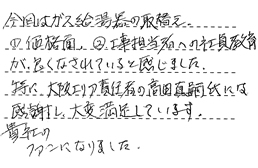 今回はガス給湯器の取替を、
①価格面、②工事担当者への社員教育
が、良くなされていると感じました。
特に、大阪エリア責任者の高田真嗣氏には
感謝し、大変満足しています。
貴社の
ファンになりました。